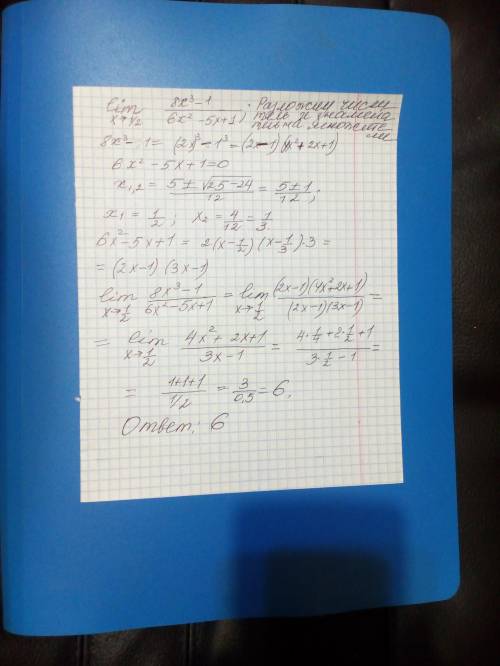 lim x→1/2 (8x³-1)/(6x²-5x+1); Разложим числи-
тель и знамена
тель на множите
ли
8x³-1 = (2x)³-1³ = (2x-1)(4x²+2x+1)
6x²-5x+1=0
x₁,₂ = (5±√25-24)/12 = (5±1)/12;
x₁ = 1/2; x₂ = 4/12 = 1/3
6x²-5x+1 = 2(x-1/2)(x-1/3)·3 =
= (2x-1)(3x-1)
lim x→1/2 (8x³-1)/(6x²-5x+1) = lim x→1/2 ((2x-1)(4x²+2x+1))/((2x-1)(3x-1)) =
= lim x→1/2 (4x²+2x+1)/(3x-1) = (4·1/4+2·1/2+1)/(3·1/2-1) =
= (1+1+1)/(1/2) = 3/0,5 = 6.
Ответ: 6